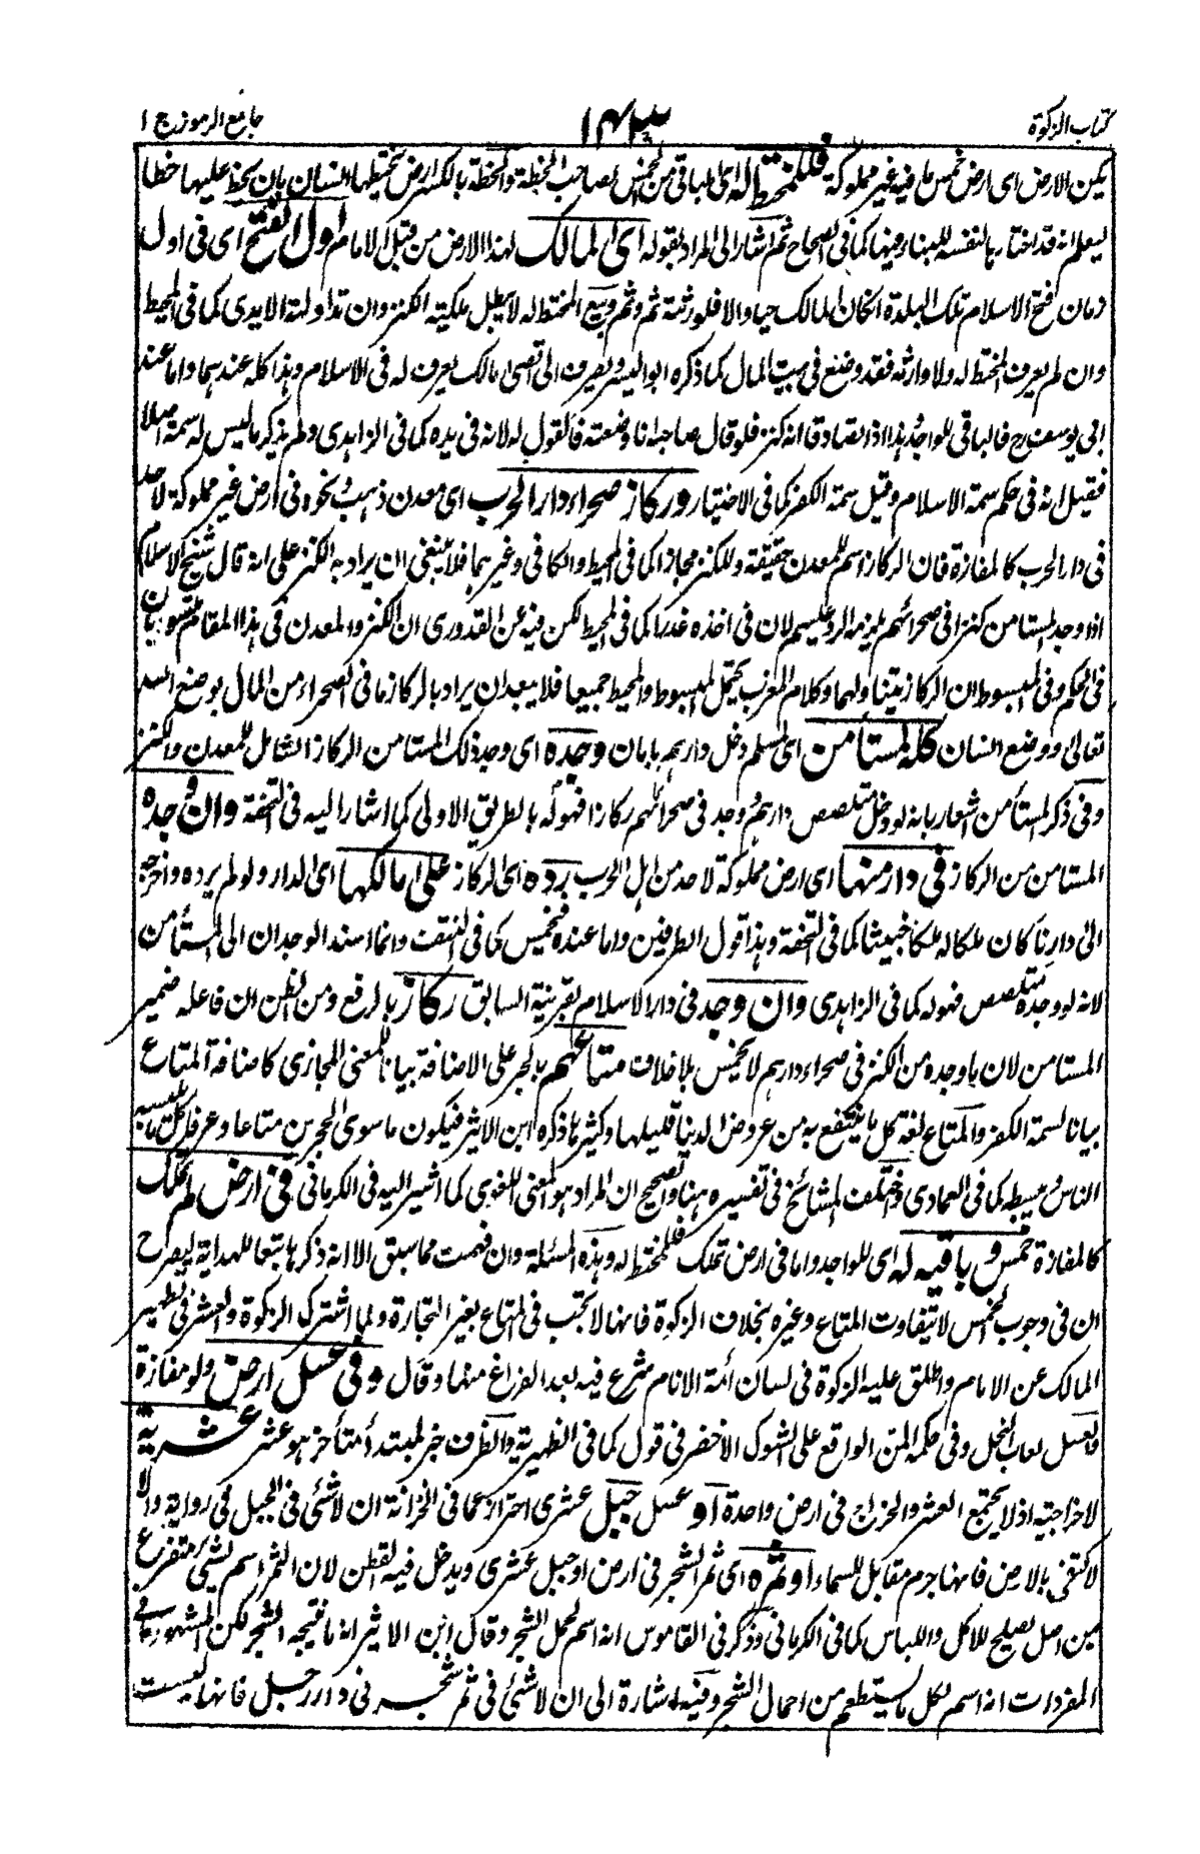 كتاب الزكوة
١٤٣
جامع الرموز ج ١
يكن الارض اى ارض خمس ما فيه غير مملوكة فللمختط له اى الباقى من الخمس لصاحب الخطة والخطة بالكسر ارض يختطها انسان بان يخط عليها خطا
ليعلم انه قد اختارها لنفسه للبناء ومنها كما فى الصحاح ثم اشار الى المراد بقوله اى المالك لهذا الارض من قبل الامام اول الفتح اى فى اول
زمان فتح الاسلام تلك البلدة ان كان المالك حيا والا فلورثته ثم وثم وبيع المختط له لا يبطل ملكية الكنز وان تداولته الايدى كما فى المحيط
وان لم يعرف المختط له ولا وارثه فقد وضع فى بيت المال كما ذكره ابو اليسر ويصرف الى اقصى مالك يعرف له فى الاسلام وهذا كله عندهما واما عند
ابى يوسف رح فالباقى للواجد وهذا اذا تصادقا انه كنز فلو قال صاحبه انا وضعته فالقول له لانه فى يده كما فى الزاهدى ولم يذكر ما ليس له سمة اصلا
فقيل انه فى حكم سمة الاسلام وقيل سمة الكفر كما فى الاختيار وركاز صحراء دار الحرب اى معدن ذهب ونحوه فى ارض غير مملوكة لاحد
فى دار الحرب كالمفازة فان الركاز اسم للمعدن حقيقة وللكنز مجازا كما فى المحيط والكافى وغيرهما فلا ينبغى ان يراد به الكنز على انه قال شيخ الاسلام
اذا وجد المستامن كنزا فى صحرائهم لم يلزمه الرد عليهم لان فى اخذه غدرا كما فى المحيط لكن فيه عن القدورى ان الكنز والمعدن فى هذا المقام متسويان
فى الحكم وفى المبسوط ان الركاز يتناولهما وكلام المغرب يحتمل المبسوط والمحيط جميعا فلا يبعد ان يراد بالركاز ما فى الصحراء من المال بوضع الله
تعالى ووضع انسان كله لمستامن اى لمسلم دخل دارهم بامان وجده اى وجد ذلك المستامن الركاز الشامل للمعدن والكنز
وفى ذكر المستأمن اشعار بانه لو دخل متلصص دارهم ووجد فى صحرائهم ركازا فهو له بالطريق الاولى كما اشار اليه فى التحفة وان وجده
المستامن من الركاز فى دار منها اى ارض مملوكة لاحد من اهل الحرب رده اى الركاز على مالكها اى الدار ولو لم يرده واخرجه
الى دارنا كان ملكا له ملكا خبيثا كما فى التحفة وهذا قول الطرفين واما عنده فخمس كما فى النتف وانما اسند الوجدان الى المستأمن
لانه لو وجده متلصص فهو له كما فى الزاهدى وان وجد فى دار الاسلام بقرينة السابق ركاز بالرفع ومن الظن ان فاعله ضمير
المستامن لان ما وجده من الكنز فى صحراء دارهم لا يخمس بلا خلاف متاعهم بالجر على الاضافة بيانا للمعنى المجازى كاضافة المتاع
بيانا لسمة الكفر والمتاع لغة كل ما ينتفع به من عروض الدنيا قليلها وكثيرها ذكره ابن الاثير فيكون ما سوى الحجرين متاعا وعرفا كل ما يلبسه
الناس ويبسطه كما فى العمادى واختلف المشائخ فى تفسيره هنا والصحيح ان المراد هو المعنى اللغوى كما اشير اليه فى الكرمانى فى ارض لم تملك
كالمفازة خمس وباقيه له اى للواجد واما فى ارض تملك فللمختط له وهذه المسئلة وان فهمت مما سبق الا انه ذكرها تبعا للهداية ليصرح
ان فى وجوب الخمس لا يتفاوت المتاع وغيره بخلاف الزكوة فانها لا تجب فى المتاع بغير التجارة ولما اشترك الزكوة والعشر فى تطهير
المالك عن الاثام واطلق عليه الزكوة فى لسان أئمة الانام شرع فيه بعد الفراغ منها وقال وفى عسل ارض ولو مفازة
فالعسل لعاب النحل وفى حكمه المن الواقع على الشوك الاخضر فى قول كما فى الظهيرية والظرف خبر لمبتدأ متأخر هو عشر عشرية
لا خراجية اذ لا يجتمع العشر والخراج فى ارض واحدة او عسل جبل عشرى احترازا عما فى الخزانة ان لا شئ فى الجبل فى رواية والا
لاكتفى بالارض فانها جرم مقابل للسماء او ثمره اى ثمر الشجر فى ارض او جبل عشرى ويدخل فيه القطن لان الثمر اسم لشئ متفرع
من اصل يصلح للاكل واللباس كما فى الكرمانى وذكر فى القاموس انه اسم لحمل الشجر وقال ابن الاثير انه ما نتيجه الشجر لكن المشهور ما فى
المفردات انه اسم لكل ما يستطعم من احمال الشجر وفيه اشارة الى ان لا شئ فى ثمر شجر فى دار رجل فانها ليست